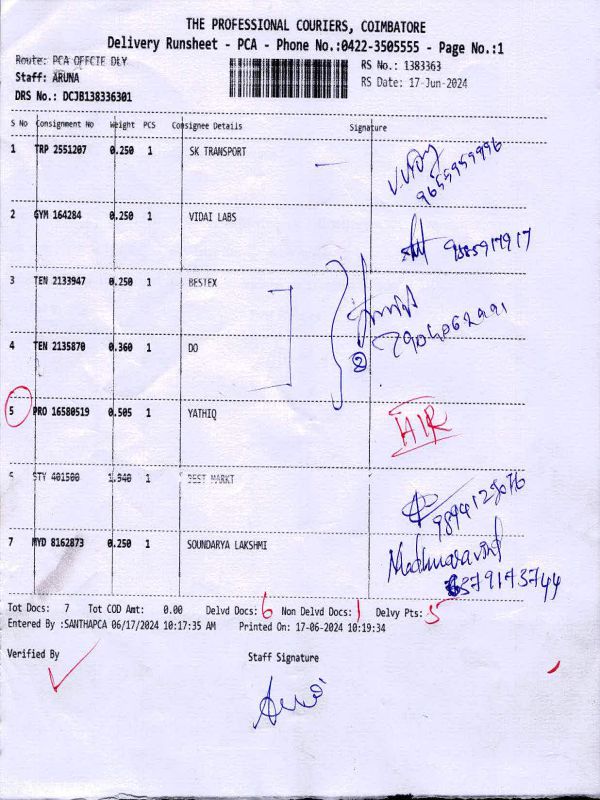 THE PROFESSIONAL COURIERS, COIMBATORE
Delivery Runsheet - PCA - Phone No.:0422-3505555 - Page No.:1
Route: PCA OFFCIE DLY
Staff: ARUNA
DRS No.: DCJB138336301
RS No.: 1383363
RS Date: 17-Jun-2024
S No Consignment No Weight PCS Consignee Details Signature
1 TRP 2551207 0.250 1 SK TRANSPORT
9655959996
2 GYM 164284 0.250 1 VIDAI LABS
3 TEN 2133947 0.250 1 BESTEX
4 TEN 2135870 0.360 1 DO
2
5 PRO 16580519 0.505 1 YATHIQ
STY 401500 1.940 1 BEST MARKT
7 MYD 8162873 0.250 1 SOUNDARYA LAKSHMI
Madhuaravind
6379173744
Tot Docs: 7 Tot COD Amt: 0.00 Delvd Docs: 6 Non Delvd Docs: 1 Delvy Pts: 5
Entered By :SANTHAPCA 06/17/2024 10:17:35 AM Printed On: 17-06-2024 10:19:34
Verified By Staff Signature